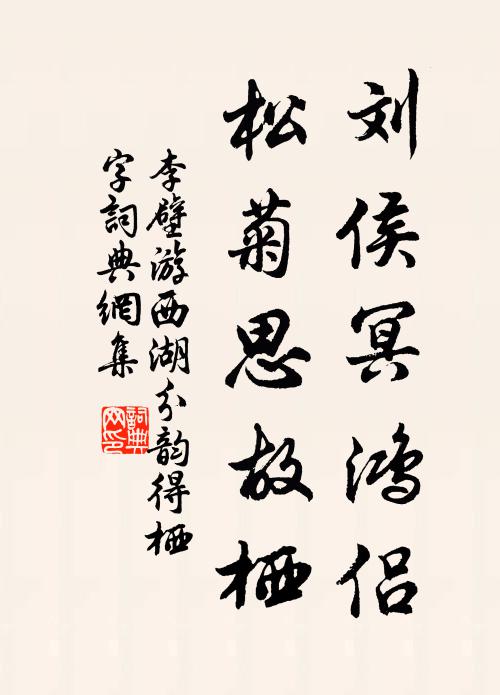 刘侯冥鸿侣
松菊思故栖
李壁游西湖分韵得栖
字詞典網集
詞典
网印